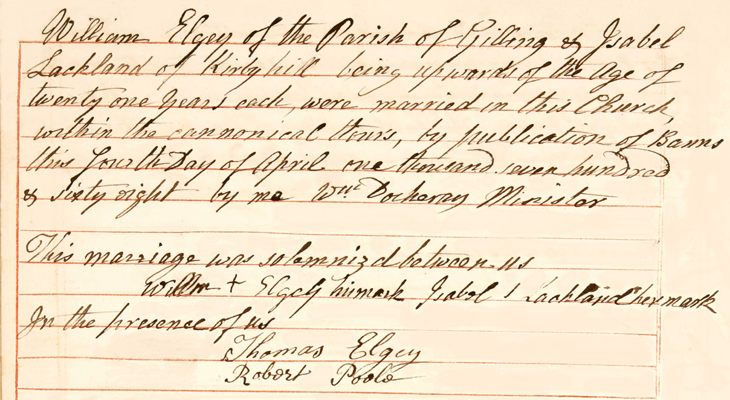 William Elgey of the Parish of Gilling & Isabel
Lackland of Kirby hill being upwards of the Age of
twenty one Years each, were married in this Church,
within the cannonical Hours, by publication of Banns
this fourth Day of April one thousand seven hundred
& sixty eight by me Wm Dockeray Minister
This marriage was solemnized between us
Willm + Elgey his mark Isabel 1 Lackland her mark
In the presence of us
Thomas Elgey
Robert Poole